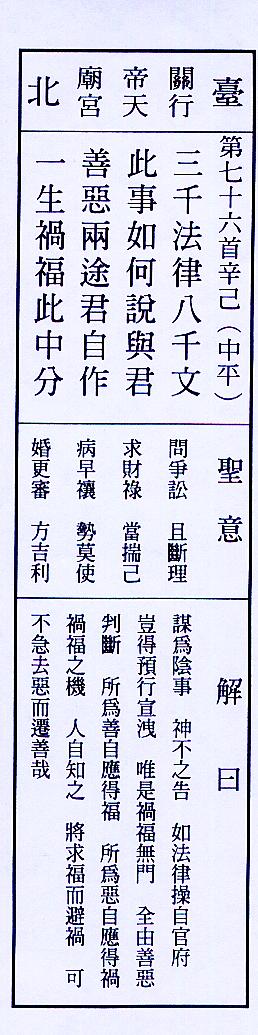 臺北
關帝廟
行天宮
第七十六首辛己（中平）
三千法律八千文
此事如何說與君
善惡兩途君自作
一生禍福此中分
聖意
問爭訟　且斷理
求財祿　當揣己
病早禳　勢莫使
婚更審　方吉利
解曰
謀爲陰事　神不之告　如法律操自官府
豈得預行宣洩　唯是禍福無門　全由善惡
判斷　所爲善自應得福　所爲惡自應得禍
禍福之機　人自知之　將求福而避禍　可
不急去惡而遷善哉